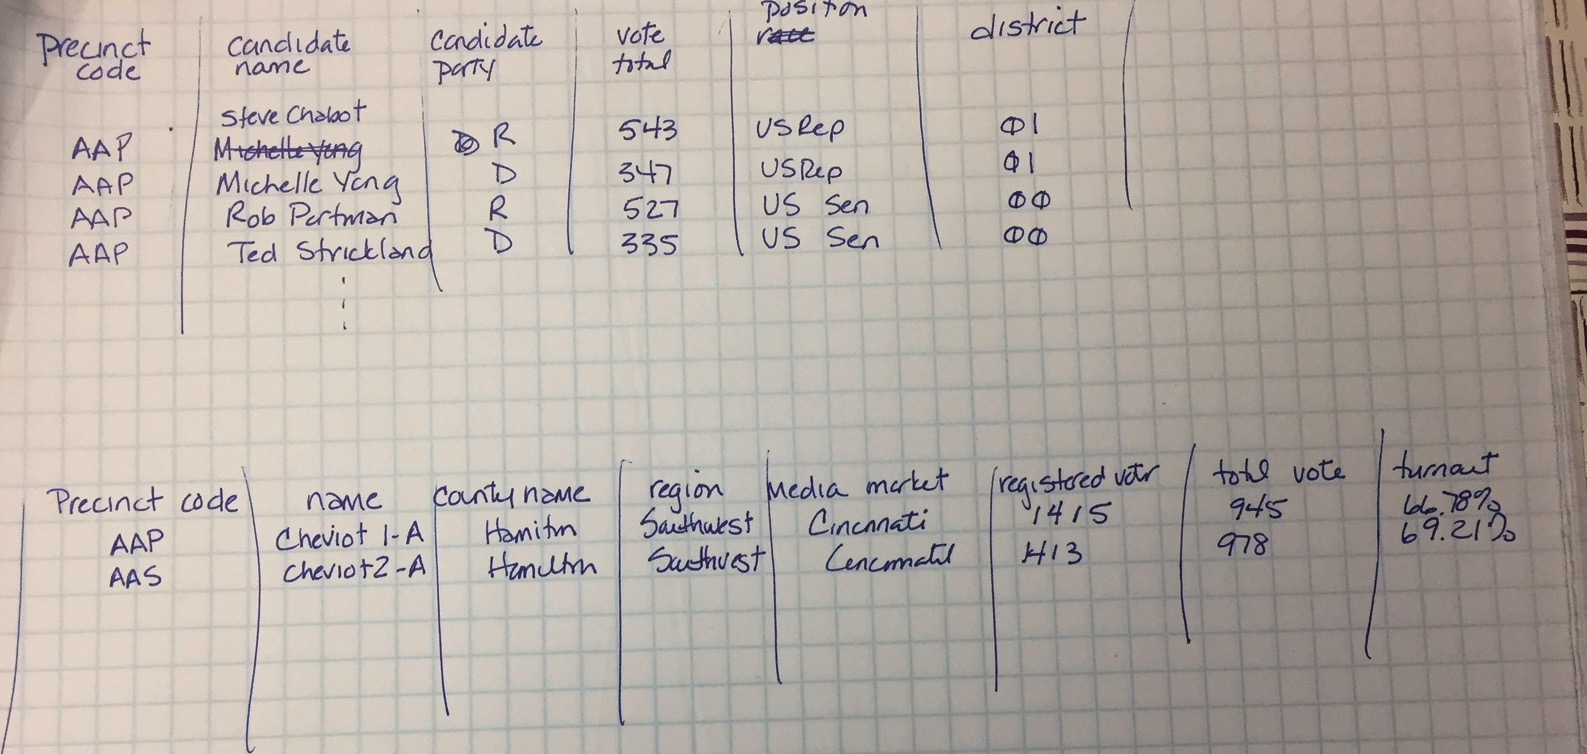 Precinct code | candidate name | Candidate party | vote total | position race | district
AAP | Steve Chabot | R | 543 | US Rep | 01
Michelle Yang
AAP | Michelle Yang | D | 347 | US Rep | 01
AAP | Rob Portman | R | 527 | US Sen | 00
AAP | Ted Strickland | D | 335 | US Sen | 00
Precinct code | name | County name | region | Media market | registered votr | total vote | turnout
AAP | Cheviot 1-A | Hamiltn | Southwest | Cincnnati | 1415 | 945 | 66.78%
AAS | Cheviot 2-A | Hamiltn | Southwest | | 1413 | 978 | 69.21%